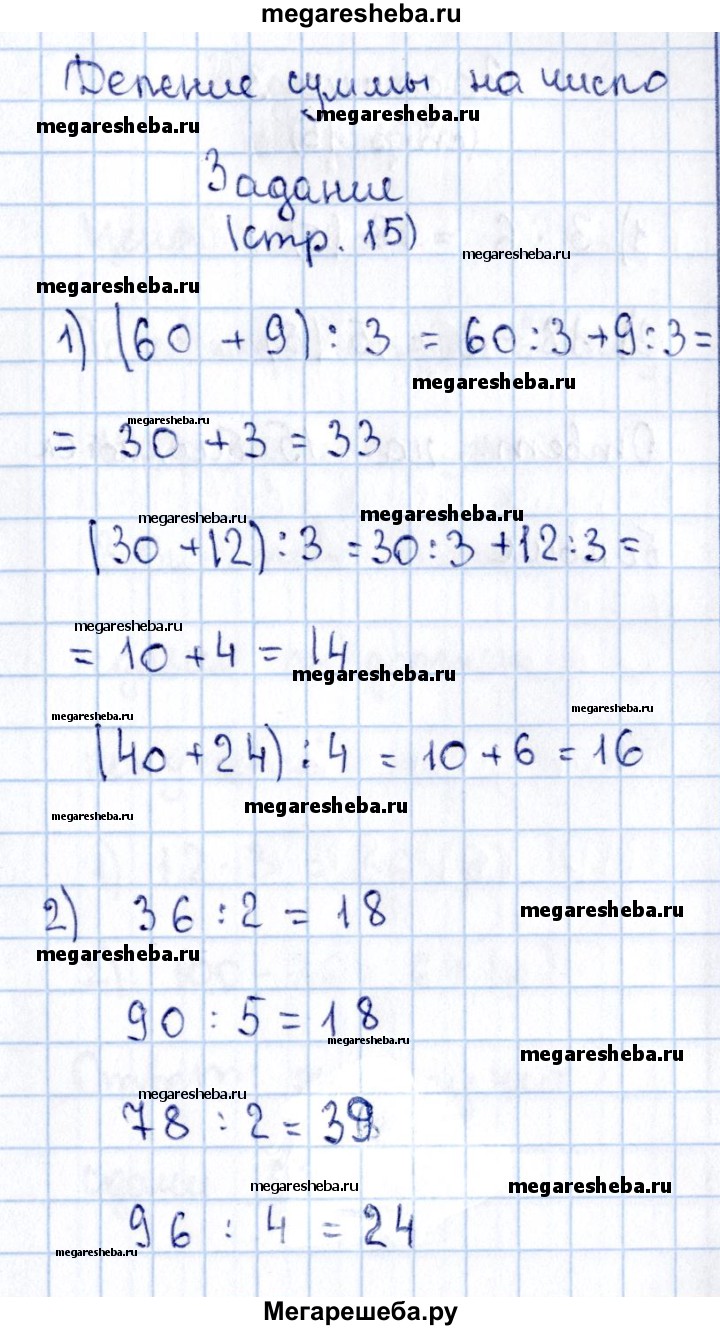 megaresheba.ru
Деление суммы на число
megaresheba.ru
megaresheba.ru
Задание
(стр. 15)
megaresheba.ru
megaresheba.ru
1) (60 + 9) : 3 = 60 : 3 + 9 : 3 =
megaresheba.ru
megaresheba.ru
= 30 + 3 = 33
megaresheba.ru
megaresheba.ru
(30 + 12) : 3 = 30 : 3 + 12 : 3 =
megaresheba.ru
= 10 + 4 = 14
megaresheba.ru
megaresheba.ru
megaresheba.ru
(40 + 24) : 4 = 10 + 6 = 16
megaresheba.ru
megaresheba.ru
2) 36 : 2 = 18
megaresheba.ru
megaresheba.ru
90 : 5 = 18
megaresheba.ru
megaresheba.ru
megaresheba.ru
78 : 2 = 39
megaresheba.ru
megaresheba.ru
96 : 4 = 24
megaresheba.ru
Мегарешеба.ру